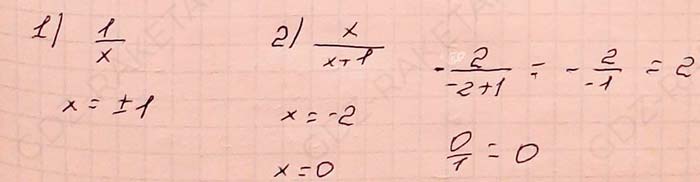 1) 1/x
x = ±1
2) x/(x+1)
x = -2
x = 0
-2/(-2+1) = -2/-1 = 2
0/1 = 0
GDZ-RAKETA